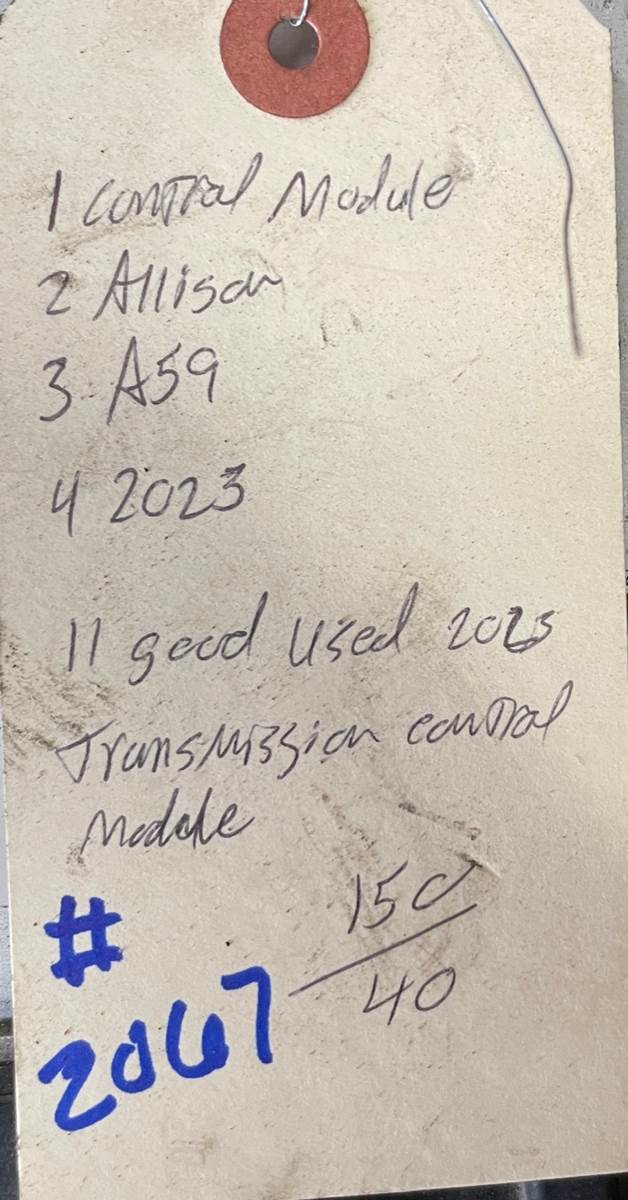 1 Control Module
2 Allison
3 A59
4 2023
11 good used 2023
Transmission control
Module
150
40
#
2067